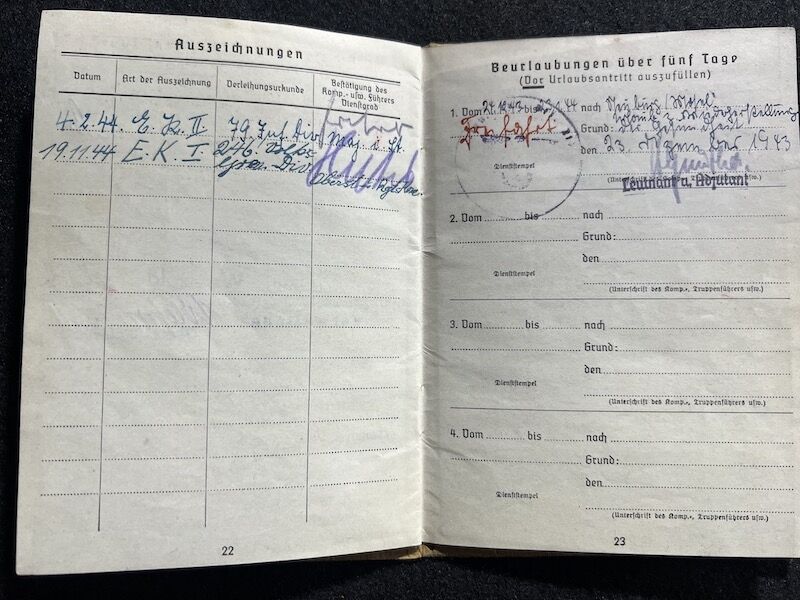 Auszeichnungen
Datum
Art der Auszeichnung
Verleihungsurkunde
Bestätigung des
Komp.- usw. Führers
Dienstgrad
4.2.44. E. K. II 79. Inf. Div. Maj.
19.11.44 E. K. I 246. Volks
Gren. Div. Oberst
22
Beurlaubungen über fünf Tage
(Vor Urlaubsantritt auszufüllen)
1. Vom bis nach
Grund:
den 23. Dezember 1943
Dienststempel
(Unterschrift des Komp., Truppenführers usw.)
Leutnant u. Adjutant
2. Vom bis nach
Grund:
den
Dienststempel
(Unterschrift des Komp., Truppenführers usw.)
3. Vom bis nach
Grund:
den
Dienststempel
(Unterschrift des Komp., Truppenführers usw.)
4. Vom bis nach
Grund:
den
Dienststempel
(Unterschrift des Komp., Truppenführers usw.)
23